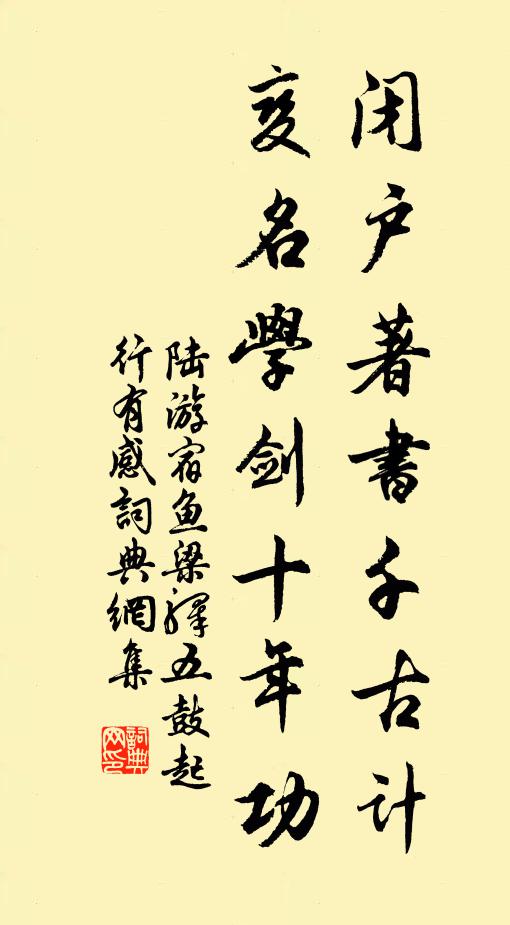 闭户著書千古计
变名學剑十年功
陆游宿鱼梁驿五鼓起
行有感詞典網集
詞典
网印